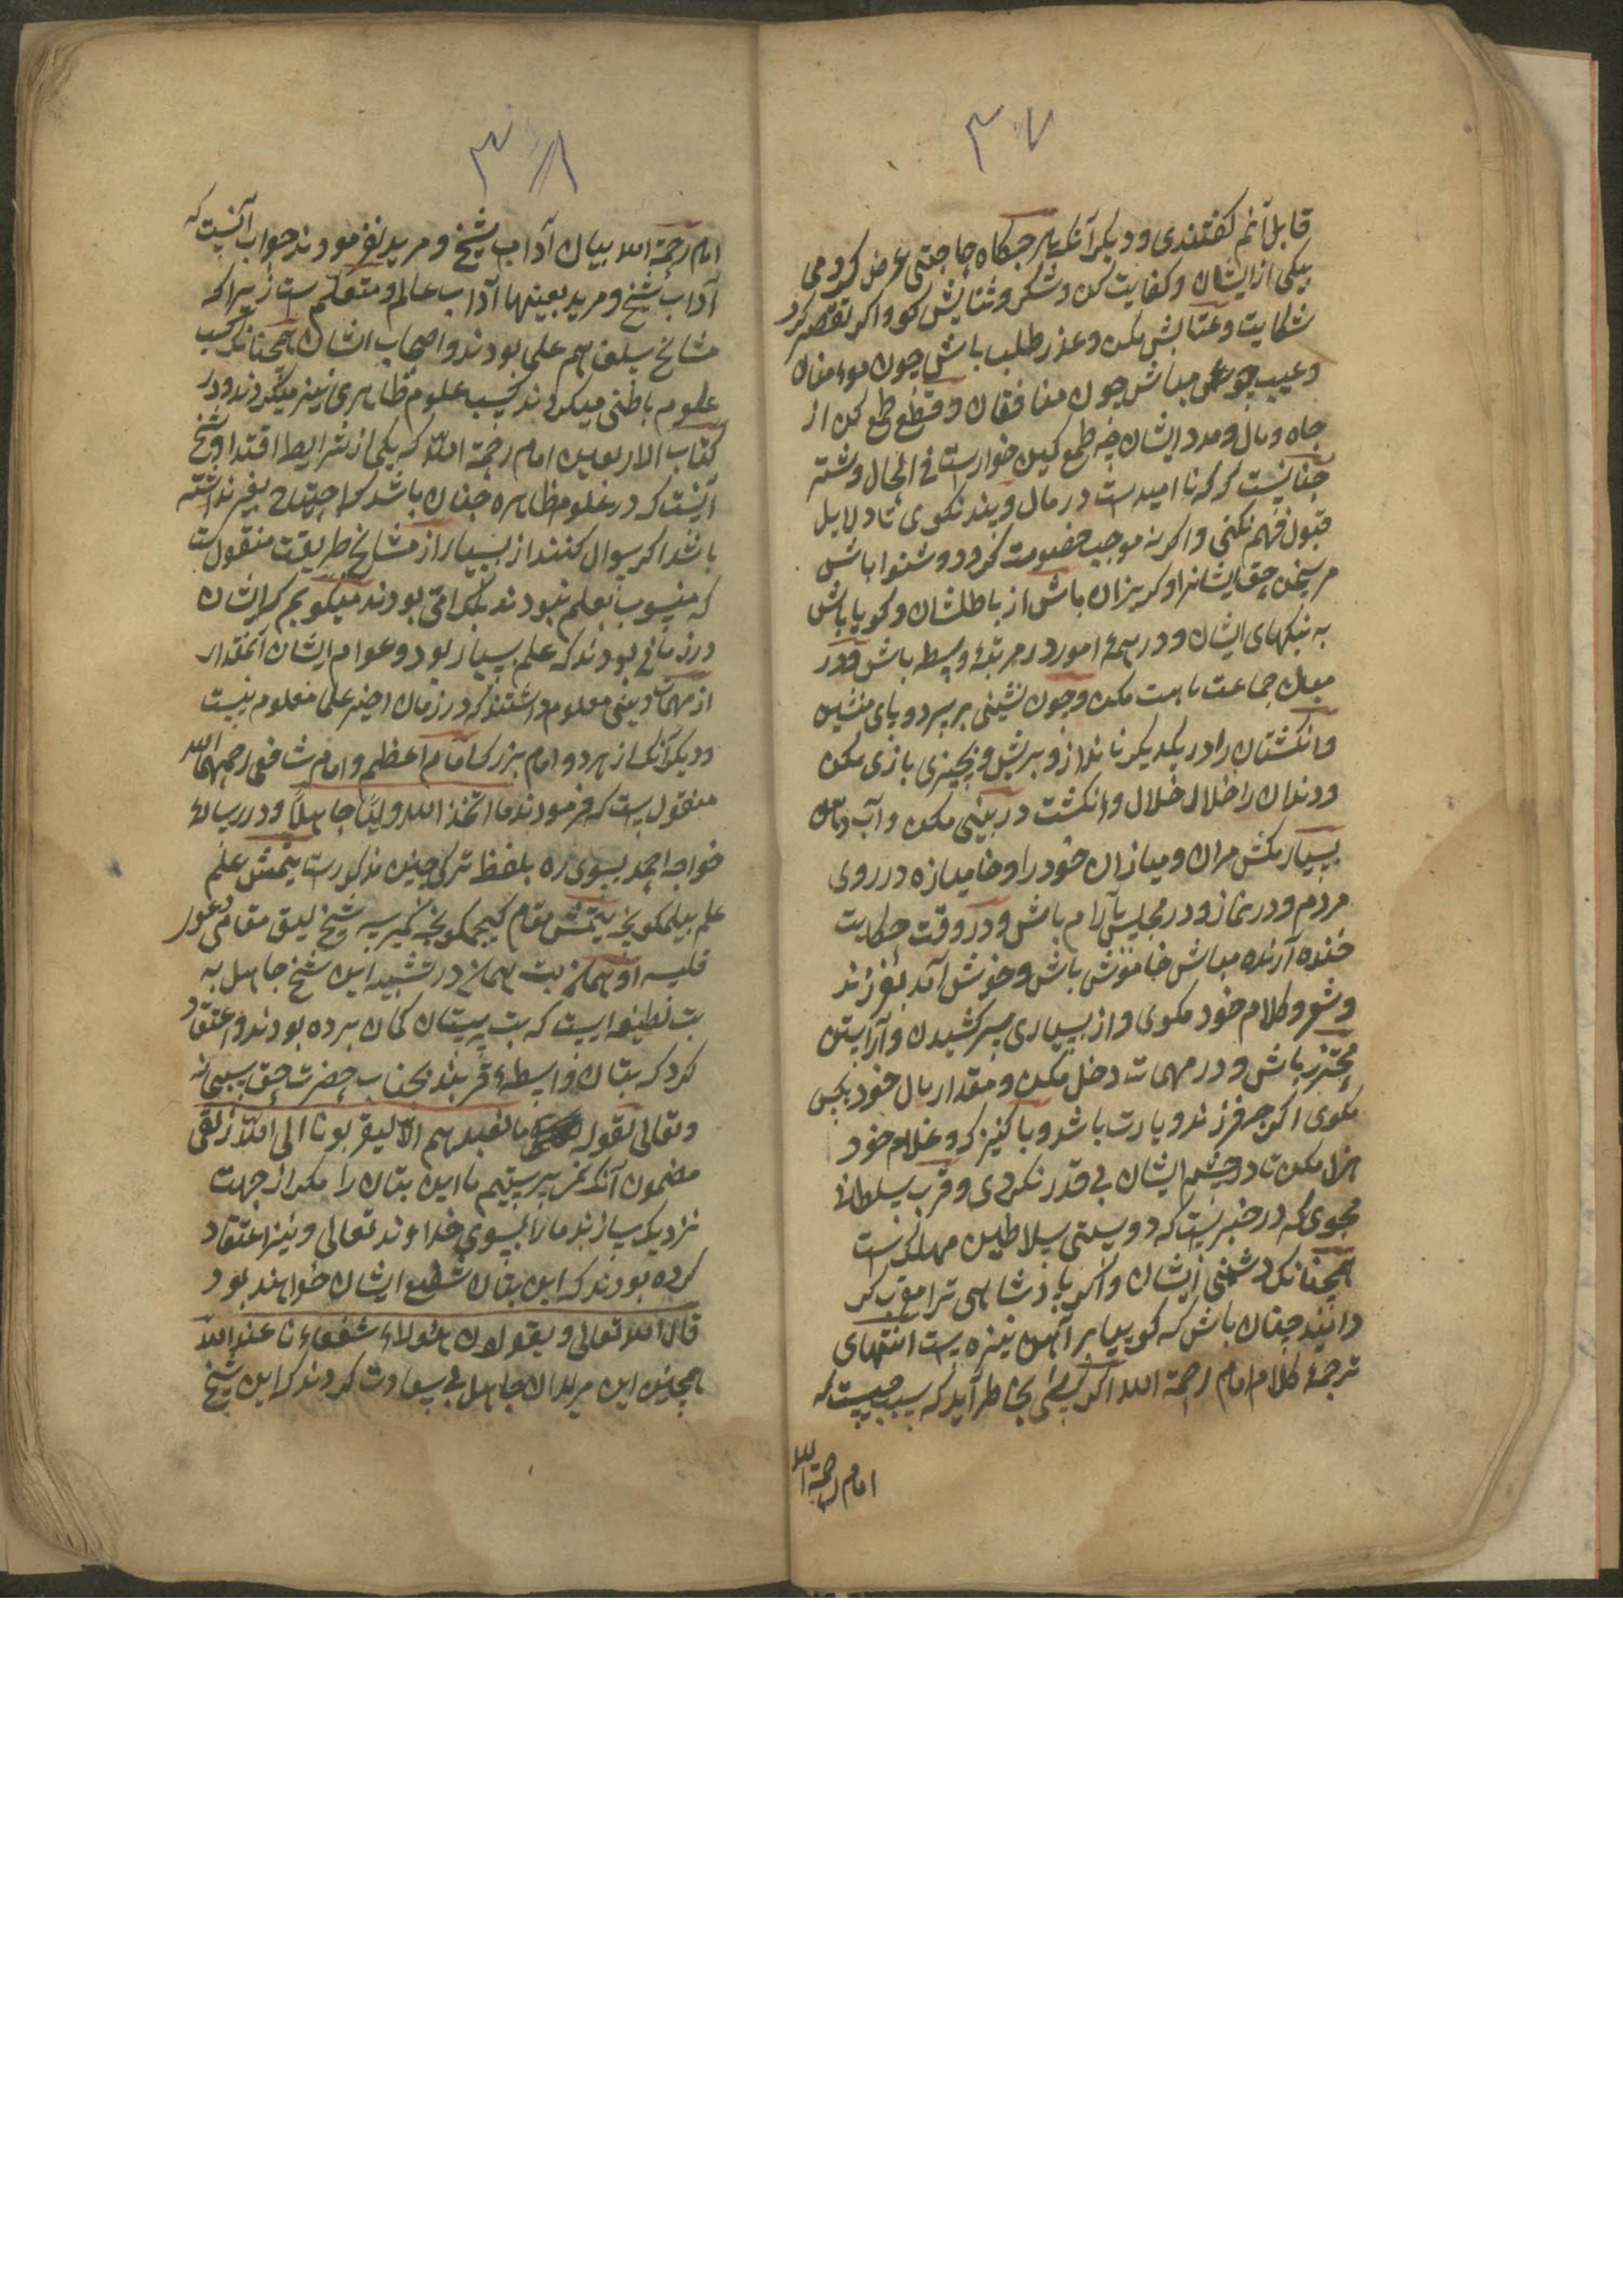 ۳۷
قابل آنم گفتندی و دیگر آنکه هر جگاه حاجتی عرض کردمی
بیکی از ایشان و کفایت کن و شکر و ثنایش گو و اگر تقصیر کرد
شکایت و عتابش مکن و عذر طلب باش چون مومنان
و عیب جوی مباش چون منافقان و قطع طمع کن از
جاه و مال و مدد ایشان چه طمع کین خوارست فی الحال و شته
جنانیست که که نا امیدست در مال و پند نکوی تا دلایل
قبول فهم نکنی و اگر نه موجب خصومت کرود و شنوا باش
مر سخن حق ایشانرا و کریزان باش از باطلشان و کویا باش
به نیکیهای ایشان و در همهٔ امور در مرتبهٔ وسطه باش و در
میان جماعت ماهت مکن و چون نشینی بر سر دو پای منشین
و انکشتان را در یکدیکر نانداز و بریش و بچیزی بازی مکن
و دندان را خلال خلال و انکشت در بینی مکن و آب دهن
بسیار مکش مران و میازان خود را و خامیازه در روی
مردم و در نماز و در مجلس بآرام باش و در وقت حکایت
خنده آرنده مباش خاموش باش و خوش آمد بفرزند
و شعر و کلام خود مکوی و از بسیاری سرکشیدن و آرایش
محترز باش و در مهمات دخل مکن و مقدار مال خود بکس
مکوی اکر چه فرزند و یارت باشد و با کنیزک و غلام خود
هزل مکن تا در چشم ایشان بی قدر نکردی و قرب سلطان
مجوی که در خبریست که دوستی سلاطین مهلکست
همچنانکه دشمنی ایشان و اکر پادشاهی ترا مقرب کر
دانید چنان باش که کوییا بر آهن نیزه یست انتهای
ترجمهٔ کلام امام رحمة الله اکر کسی بخاطر آید که سبب چیست که
امام رحمة الله
۳۸
امام رحمة الله بیان آداب شیخ و مرید نفرمودند جواب آنست که
آداب شیخ و مرید بعینها آداب عالم و متعلم ست زیراکه
مشایخ سلف هم علمی بودند و اصحاب ایشان همچنانکه کسب
علوم باطنی میکردند کسب علوم ظاهری نیز میکردند و در
کتاب الاربعین امام رحمة الله که یکی از شرایط اقتدا و شیخ
آنست که در علوم ظاهره چنان باشد که احتیاج بغیر نداشته
باشد اکر سوال کنند از بسیار از مشایخ طریقت منقولست
که منسوب بعلم نبودند بلکه امی بودند میکویم که ایشان
در زمانی بودند که علم بسیار بود و عوام ایشان آنمقدار
از مهمات دینی معلوم داشتند که در زمان اخیر علما معلوم نیست
و دیکر آنکه از هر دو امام بزرک امام اعظم و امام شافعی رحمهما الله
منقول ست که فرمودند ما اتخذ الله ولیّا جاهلاً و در رسالهٔ
خواجه احمد یسوی ره بلفظ ترکی چنین مذکورست یتمش علم
علم بیلمکونچه یتمش مقام کیچمکونچه نمیرسه شیخ لیق مقامی دعور
قلیسه او هم بت همان در تشبیه این شیخ جاهل به
بت لطیفه ایست که بت پرستان کمان برده بودند و اعتقاد
کرد که بتان واسطهٔ قربند بجناب حضرت حق سبحانه
و تعالی لقوله ما نعبدهم الا لیقربونا الی الله زلفی
مضمون آنکه نمی پرستیم ما این بتان را مکر از جهت
نزدیک سازند ما را بسوی خداوند تعالی و نیز اعتقاد
کرده بودند که این بتان شفیع ایشان خواهند بود
قال الله تعالی و یقولون هئولاء شفعاءنا عند الله
همچنین این مریدان جاهل بی سعادت کردند که این شیخ